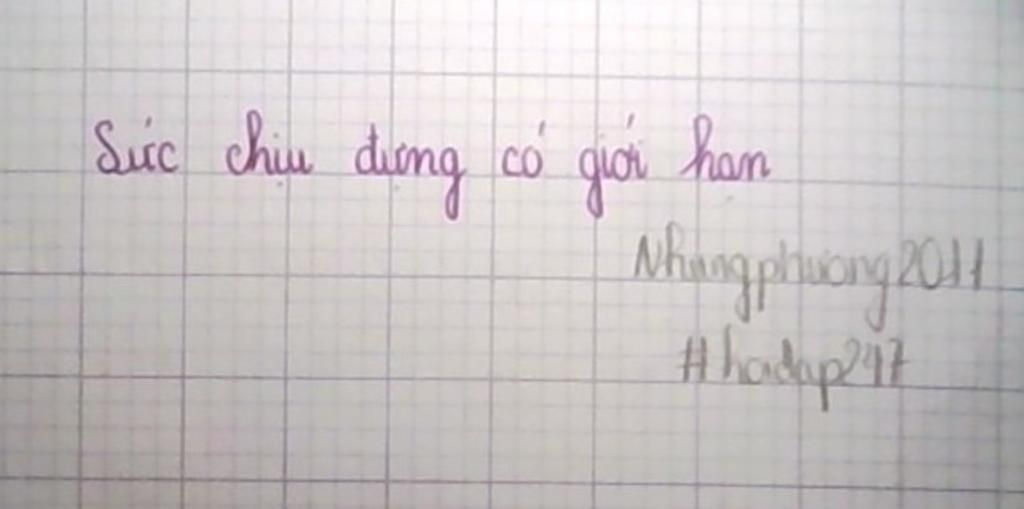 Sức chịu đựng có giới hạn
Nhungphuong2011
#hoidap247